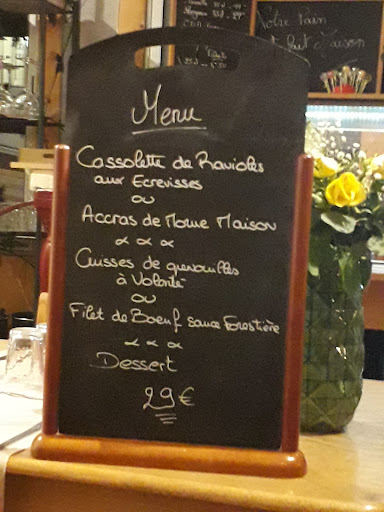 Menu
Cassolette de Ravioles
aux Ecrevisses
ou
Accras de Morue Maison
Cuisses de grenouilles
à Volonté
ou
Filet de Boeuf sauce Forestière
Dessert
29€
Notre Pain
est fait Maison